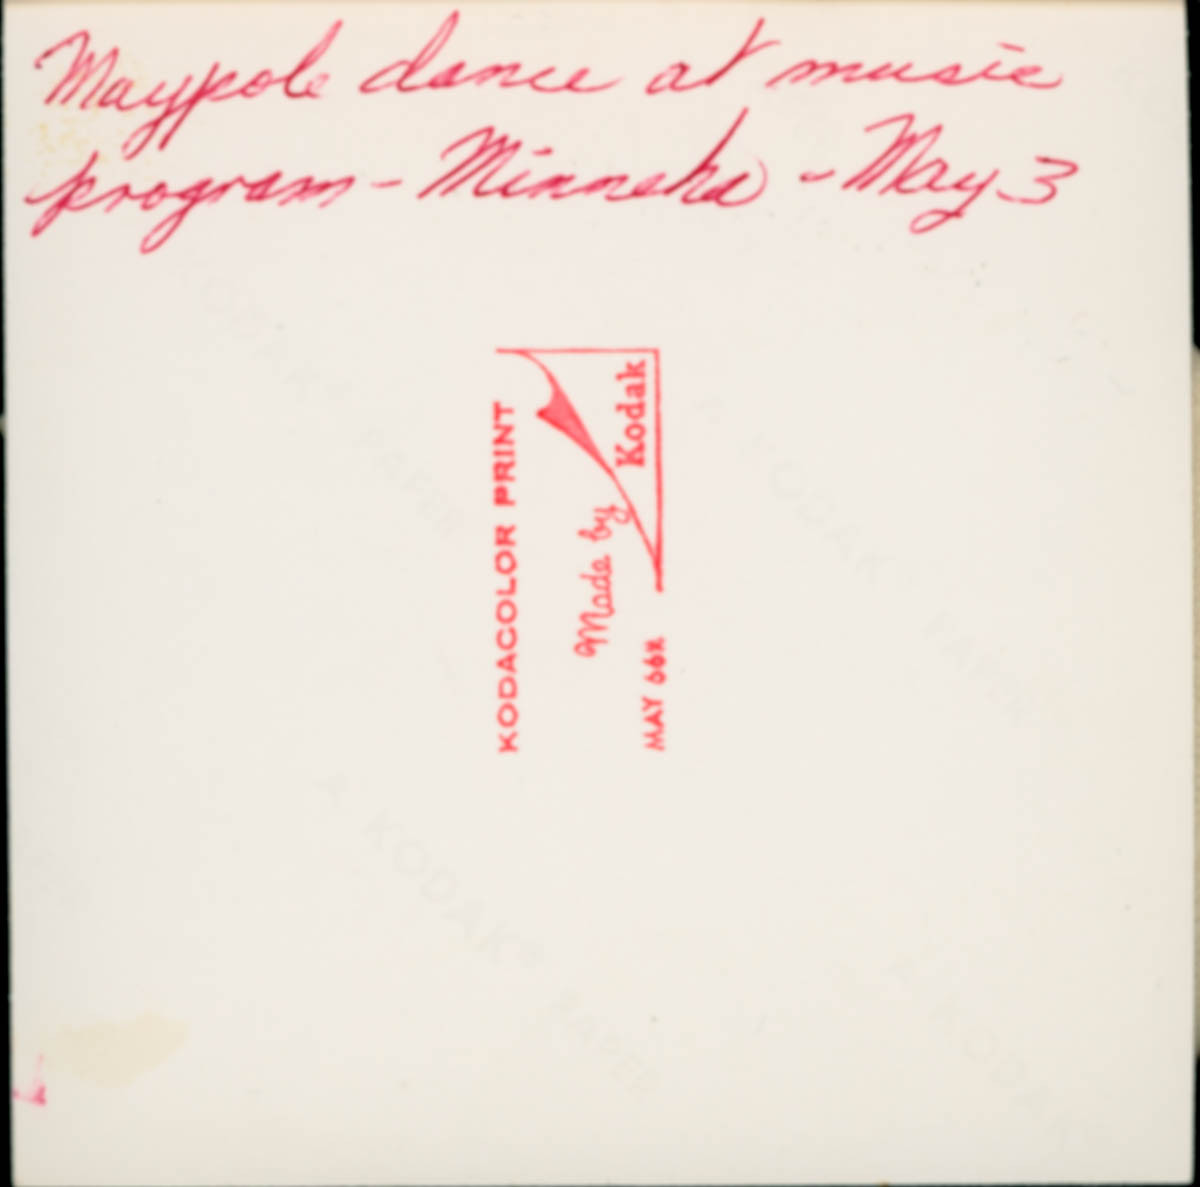 Maypole dance at music
program - Minneha - May 3
KODACOLOR PRINT
Made by
Kodak
MAY 66R
A KODAK® PAPER
A KODAK® PAPER
A KODAK® PAPER
A KODAK®